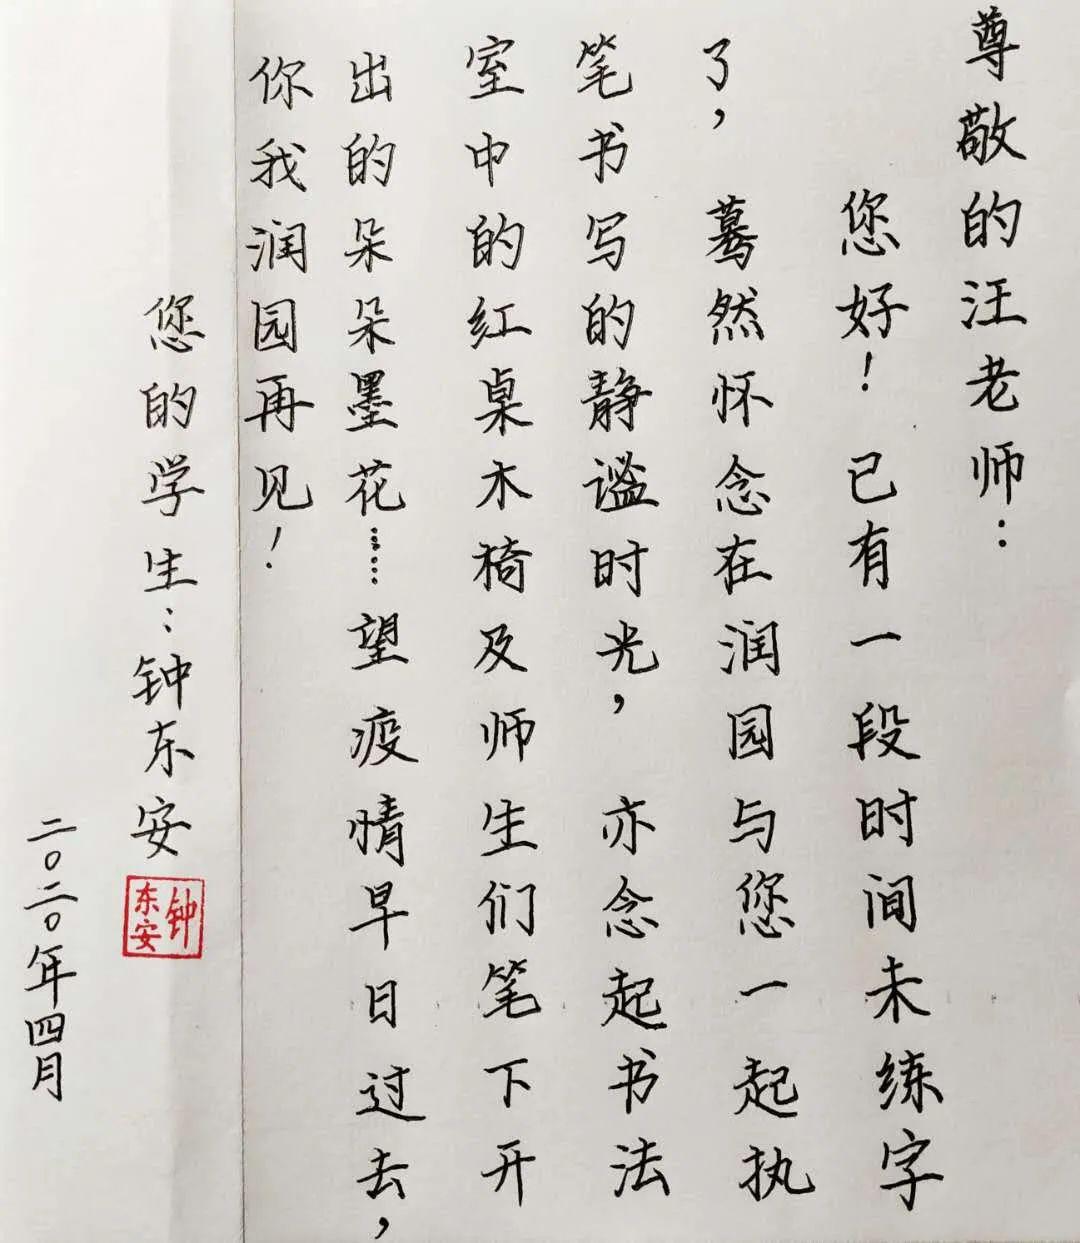 尊敬的汪老师：
您好！已有一段时间未练字
了，蓦然怀念在润园与您一起执
笔书写的静谧时光，亦念起书法
室中的红桌木椅及师生们笔下开
出的朵朵墨花……望疫情早日过去，
你我润园再见！
您的学生：钟东安
钟东安
二〇二〇年四月